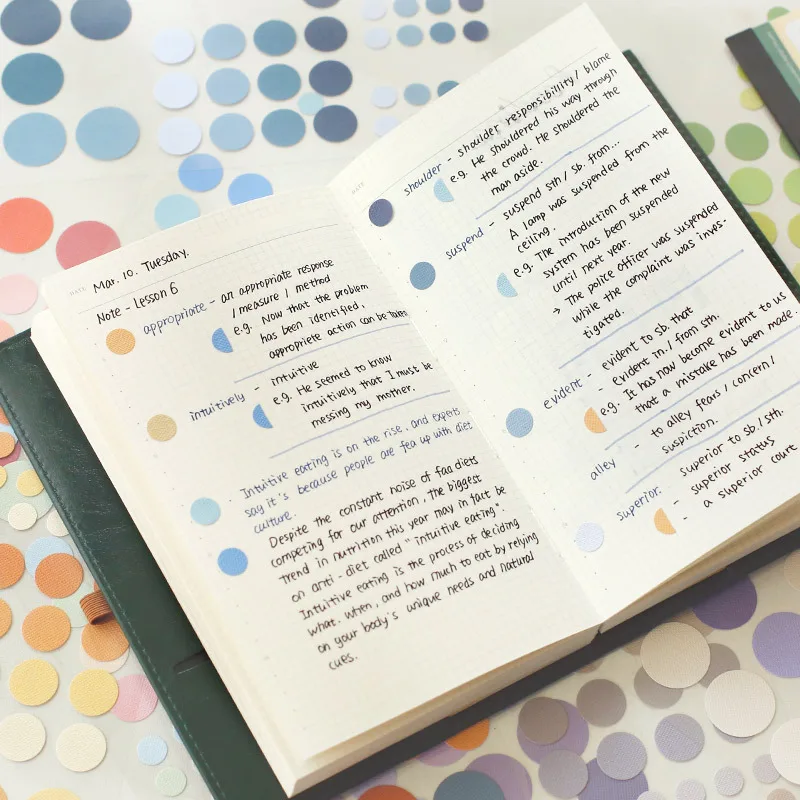 DATE Mar. 10. Tuesday.
Note - Lesson 6
appropriate - an appropriate response
/ measure / method
e.g. Now that the problem
has been identified,
appropriete action can be taken
intuitively - intuitive
e.g. He seemed to know
intuitively that I must be
messing my mother.
Intuitive eating is on the rise, and experts
say it's because people are fea up with diet
culture.
Despite the constant noise of faa diets
competing for our attention, the biggest
Trend in nutrition this year may in fact be
on anti-diet called "intuitive eating".
Intuitive eating is the process of deciding
what. when, and how much to eat by relying
on your body's unique needs and natural
cues.
NOTE
shoulder - shoulder responsibility / blame
e.g. He shouldered his way through
the crowd. He shouldered the
man aside.
suspend - suspend sth / sb. from...
A lamp was suspended from the
ceiling.
e.g. The introduction of the new
system has been suspended
until next year.
→ The police officer was suspended
while the complaint was inves-
tigated.
evident - evident to sb. that
- evident in / from sth.
e.g. It has now become evident to us
that a mistake has been made.
alley - to alley fears / concern /
suspiction.
superior: superior to sb. / sth.
- superior status
- a superior court